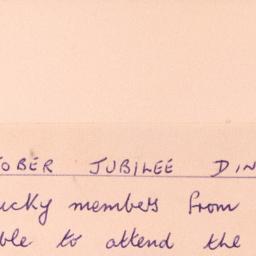 TOBER JUBILEE DIN
ucky members from
ble to attend the